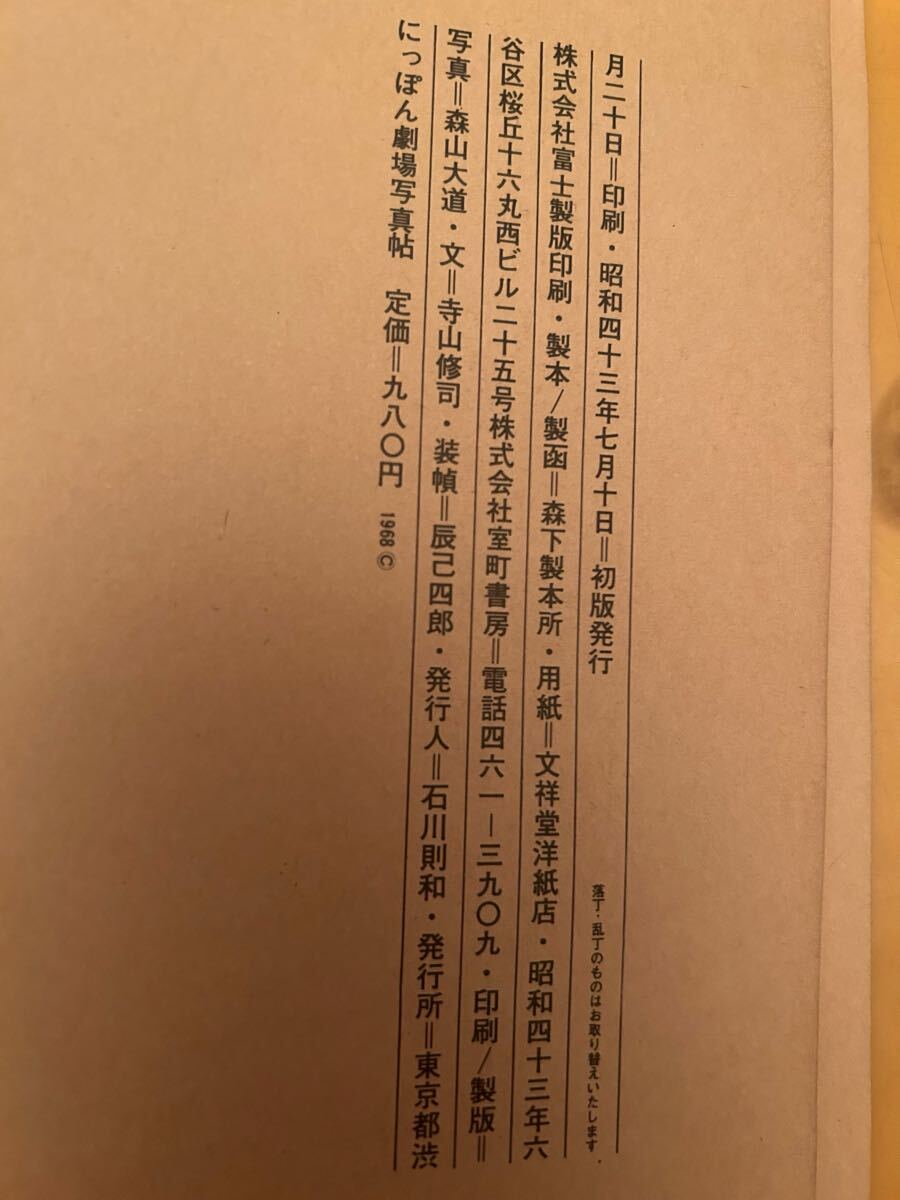 にっぽん劇場写真帖　定価＝九八〇円　1968 ©
写真＝森山大道・文＝寺山修司・装幀＝辰己四郎・発行人＝石川則和・発行所＝東京都渋
谷区桜丘十六丸西ビル二十五号株式会社室町書房＝電話四六一―三九〇九・印刷/製版＝
株式会社富士製版印刷・製本/製函＝森下製本所・用紙＝文祥堂洋紙店・昭和四十三年六
月二十日＝印刷・昭和四十三年七月十日＝初版発行
落丁・乱丁のものはお取り替えいたします.